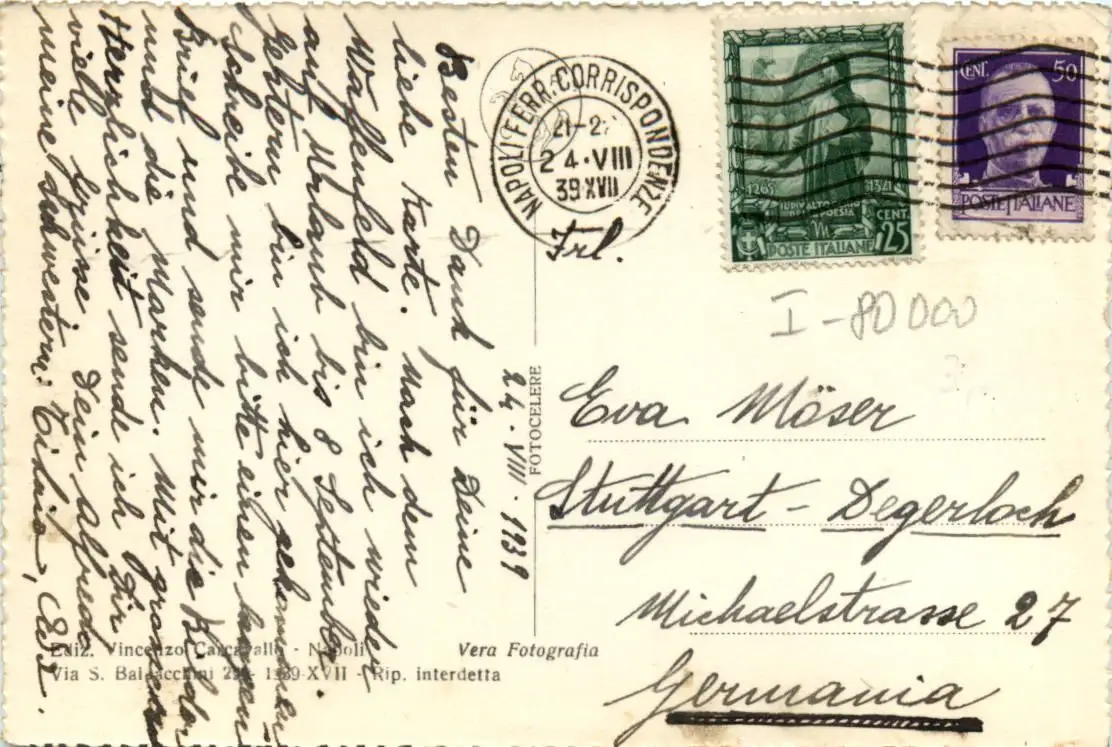 24. VIII. 1939
Besten Dank für Deine
liebe Karte. Nach dem
Waffenfeld bin ich wieder
auf Urlaub bis 8 September.
Gestern bin ich hier gekommen.
Schreibe mir bitte einen langen
Brief und sende mir die Bilder
und die Marken. Mit grosser
Herzlichkeit sende ich Dir
viele Grüsse. Dein Alfredo
meine Schwestern:
NAPOLI FERR. CORRISPONDENZE
24·VIII
39 XVII
1265 1321
CENT.
25
POSTE ITALIANE
CENT. 50
POSTE ITALIANE
I-80 000
Frl.
Eva Möser
Stuttgart - Degerloch
Michaelstrasse 27
Germania
FOTOCELERE
Ediz. Vincenzo Carcavallo - Napoli
Via S. Baldacchini 29 - 1939-XVII - Rip. interdetta
Vera Fotografia